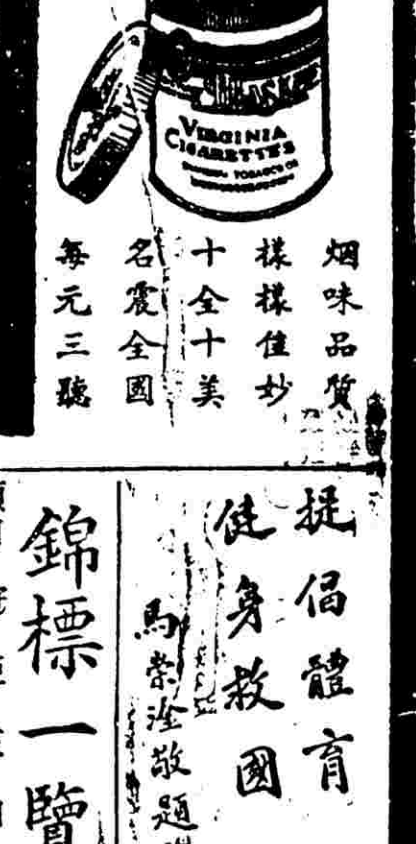 VIRGINIA
CIGARETTES
烟味品質
樣樣佳妙
十全十美
名震全國
每元三聽
提倡體育
健身救國
馬崇淦敬題
錦標一覽